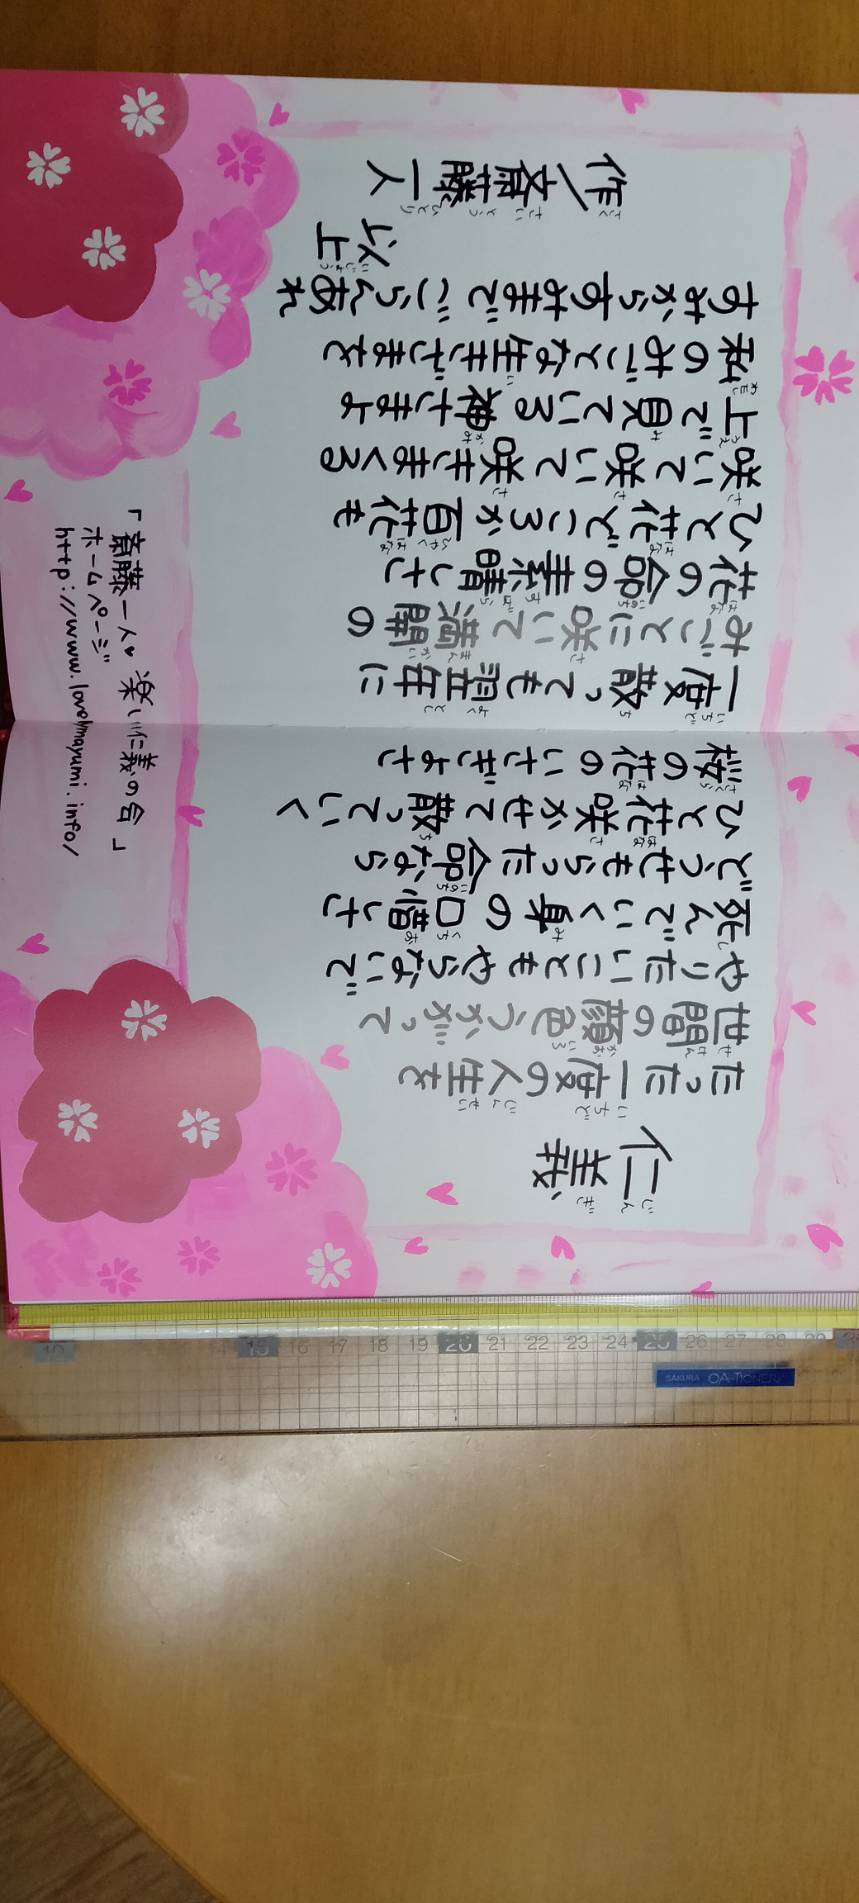 仁義
たった一度の人生を
世間の顔色うかがって
やりたいこともやらないで
死んでいく身の口惜しさ
どうせもらった命なら
ひと花咲かせて散っていく
桜の花のいさぎよさ
一度散っても翌年に
みごとに咲いて満開の
花の命の素晴しさ
ひと花どころか百花も
咲いて咲いて咲きまくる
上で見ている神さまよ
私のみごとな生きざまを
すみからすみまでごらんあれ
以上
作/斎藤一人
「斎藤一人♥楽しい仁義の会」
ホームページ
http://www.lovelymayumi.info/
10 15 16 17 18 19 20 21 22 23 24 25 26 27 28 29 30
SAKURA OA-TIONERY